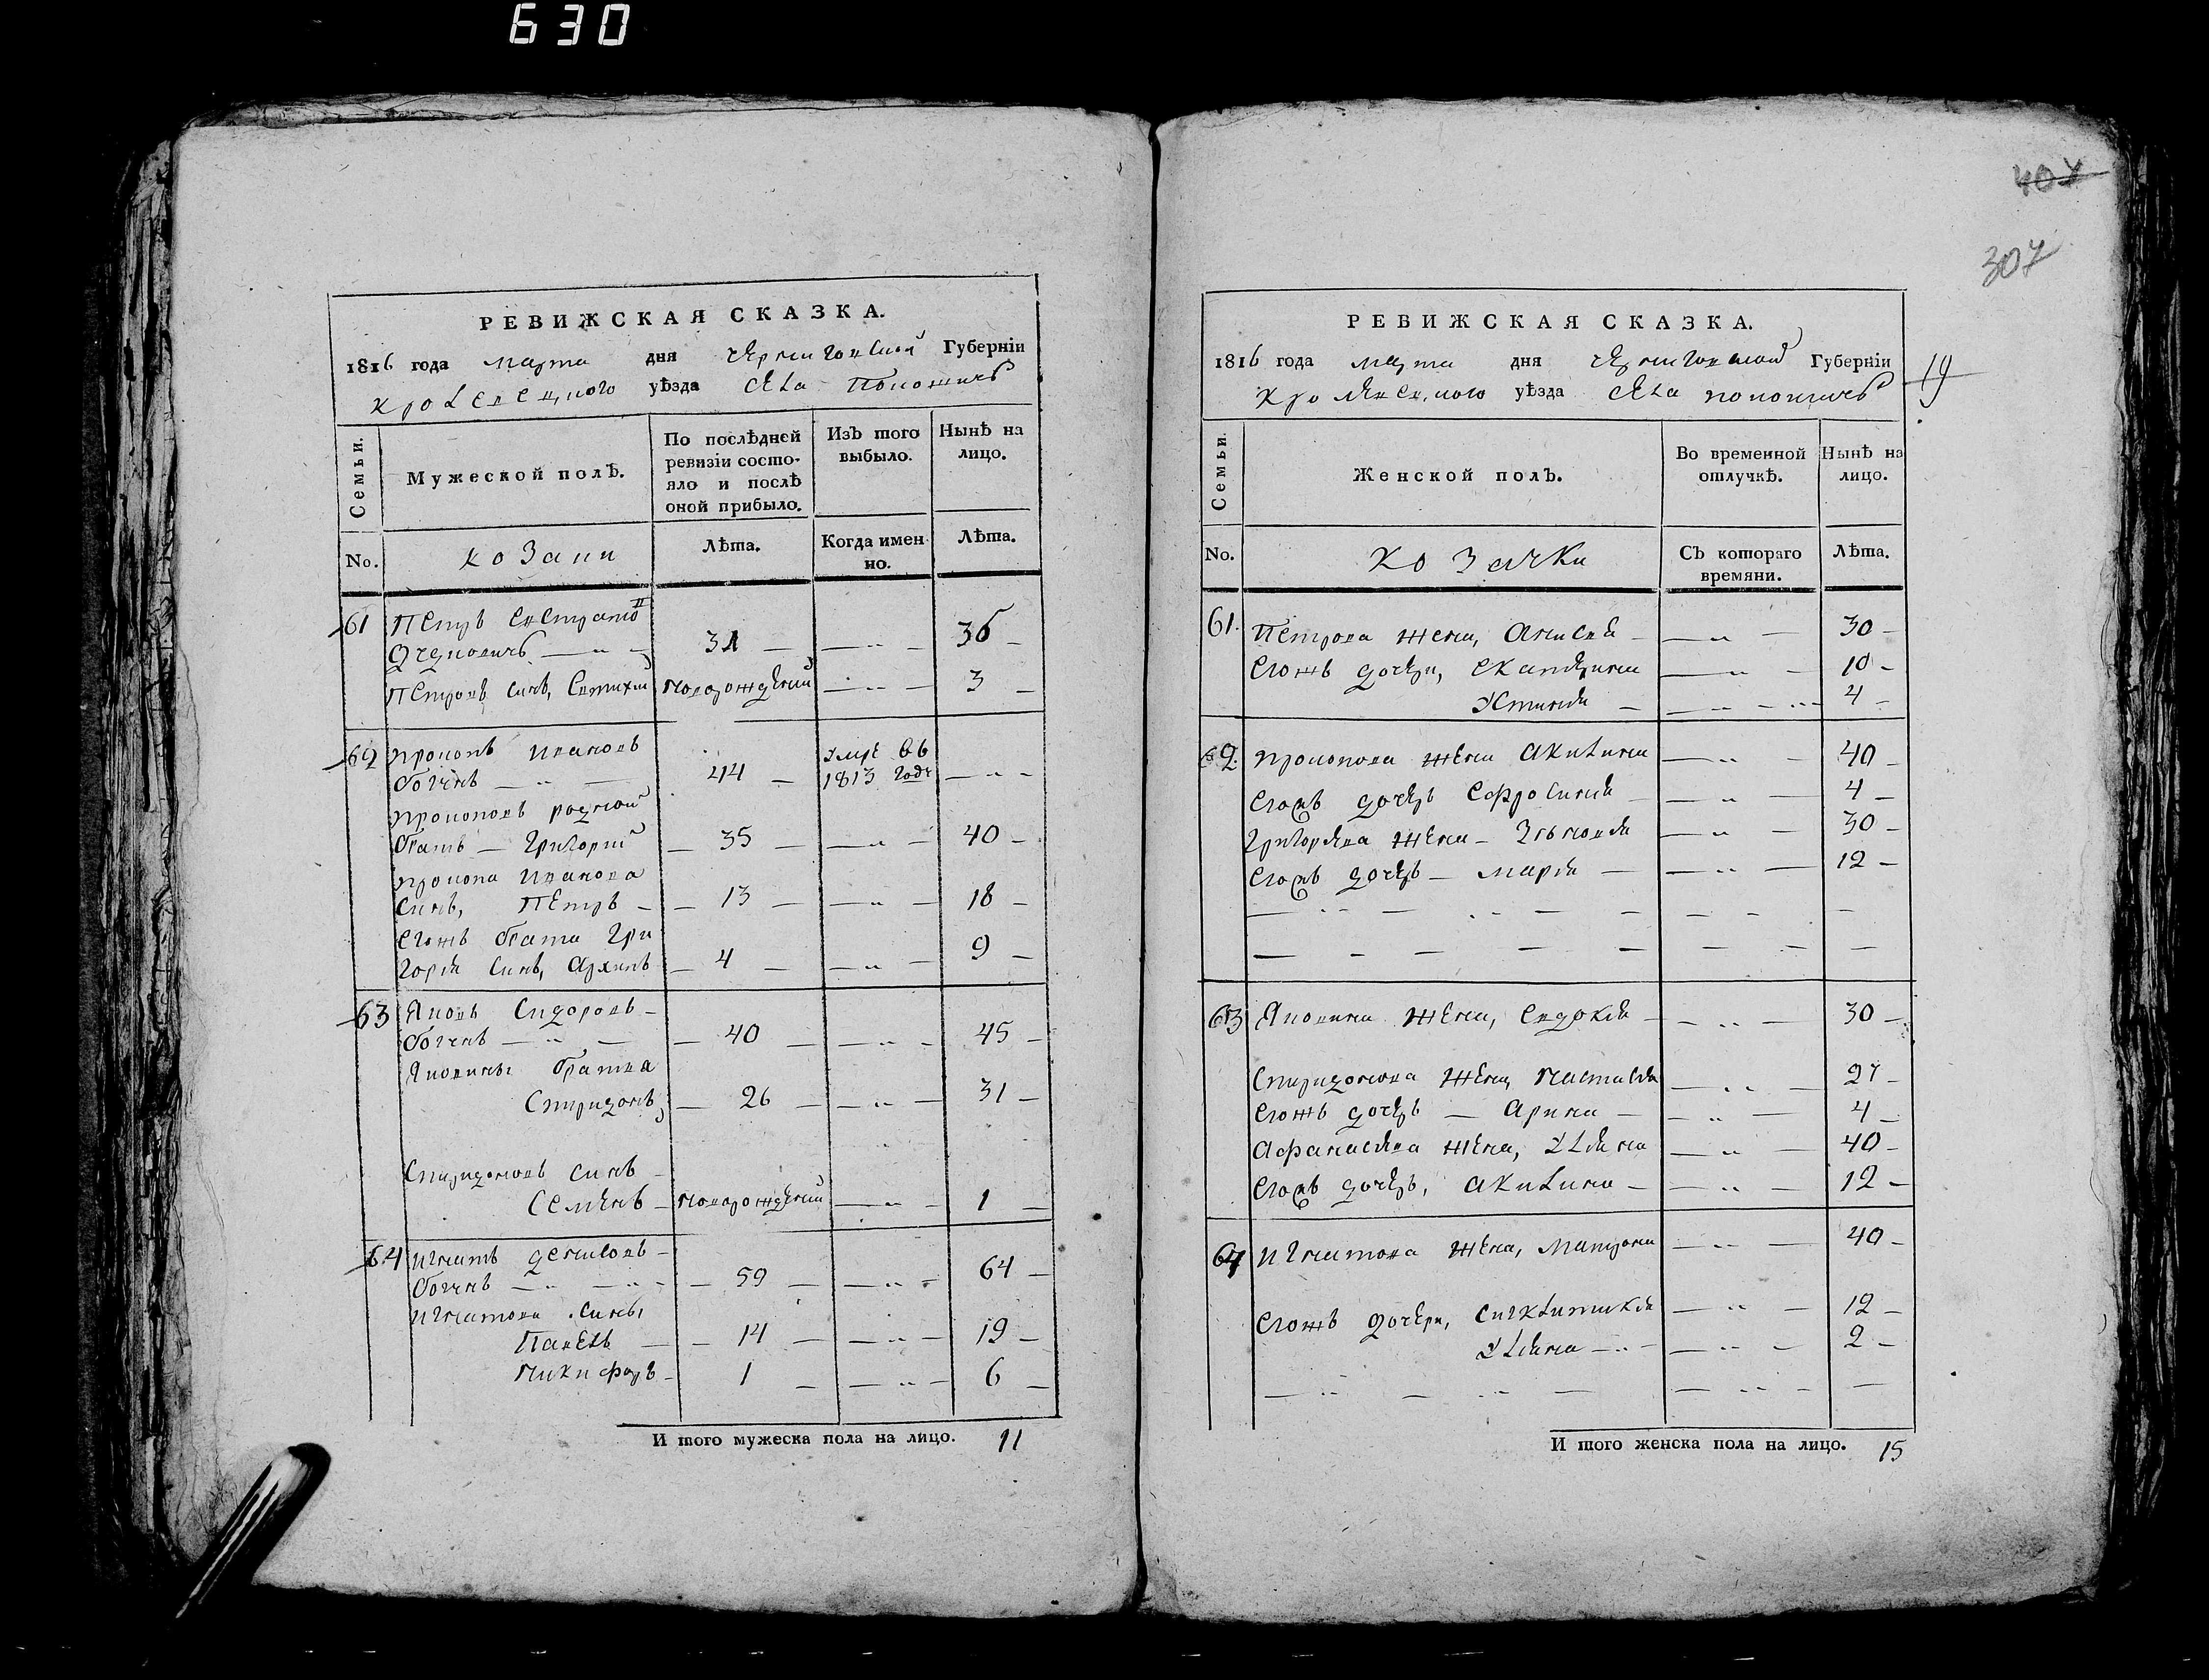 630
407
307
19
РЕВИЖСКАЯ СКАЗКА.
1816 года марта дня Черниговской Губерніи
Кролевецкого уѣзда села Понорничь
Семьи.
Мужеской полъ.
По послѣдней ревизіи состояло и послѣ оной прибыло.
Изъ того выбыло.
Нынѣ на лицо.
No.
козаки
Лѣта.
Когда именно.
Лѣта.
61 Петръ Евстратов
31 — — „ — 36 —
Петровъ синъ, Евтихий новорождений — „ — 3 —
62 Прокопъ Ивановъ
Умре въ
Богунъ — „ — 44 — 1813 годе — „ —
Прокоповъ родной
братъ — Григорий — 35 — — „ — 40 —
Прокопа Иванова
синъ, Петръ — — 13 — — „ — 18 —
Егожъ брата Гри
горія синъ, Архипъ — 4 — — „ — 9 —
63 Яковъ Сидоровъ —
— „ — — 40 — — „ — 45 —
Яковины братья
Спиридонъ, — 26 — — „ — 31 —
Спиридоновъ синъ —
Семенъ — новорожденний — „ — 1 —
64 Игнатъ Денисовъ —
— „ — „ — — 59 — — „ — 64 —
Игнатова сины
Павелъ — — 14 — — „ — 19 —
Никифоръ — 1 — — „ — 6 —
И того мужеска пола на лицо. 11
РЕВИЖСКАЯ СКАЗКА.
1816 года марта дня Черниговской Губерніи
Кролевецкого уѣзда села Понорничь
Семьи.
Женской полъ.
Во временной отлучкѣ.
Нынѣ на лицо.
No.
козачки
Съ котораго времяни.
Лѣта.
61. Петрова жена, Анисия — — „ — 30 —
Егожъ дочери, Екатерина — „ — 10 —
Устинія — — „ — 4 —
62. Прокопова жена Акилина — „ — 40 —
Егожъ дочерь Ефросинія — — „ — 4 —
Григорьева жена — Зѣновія — „ — 30 —
Егожъ дочерь — Марія — — „ — 12 —
63 Яковина жена, Евдокія — — „ — 30 —
Спиридонова жена, Настасія — „ — 27 —
Егожъ дочерь — Арина — — „ — 4 —
Афанасіева жена, Уляна — „ — 40 —
Егожъ дочерь, Акилина — — „ — 12 —
64 Игнатова жена, Матрона — „ — 40 —
Егожъ дочери, Сигклитикія — „ — 12 —
Уляна — „ — — „ — 2 —
И того женска пола на лицо. 15